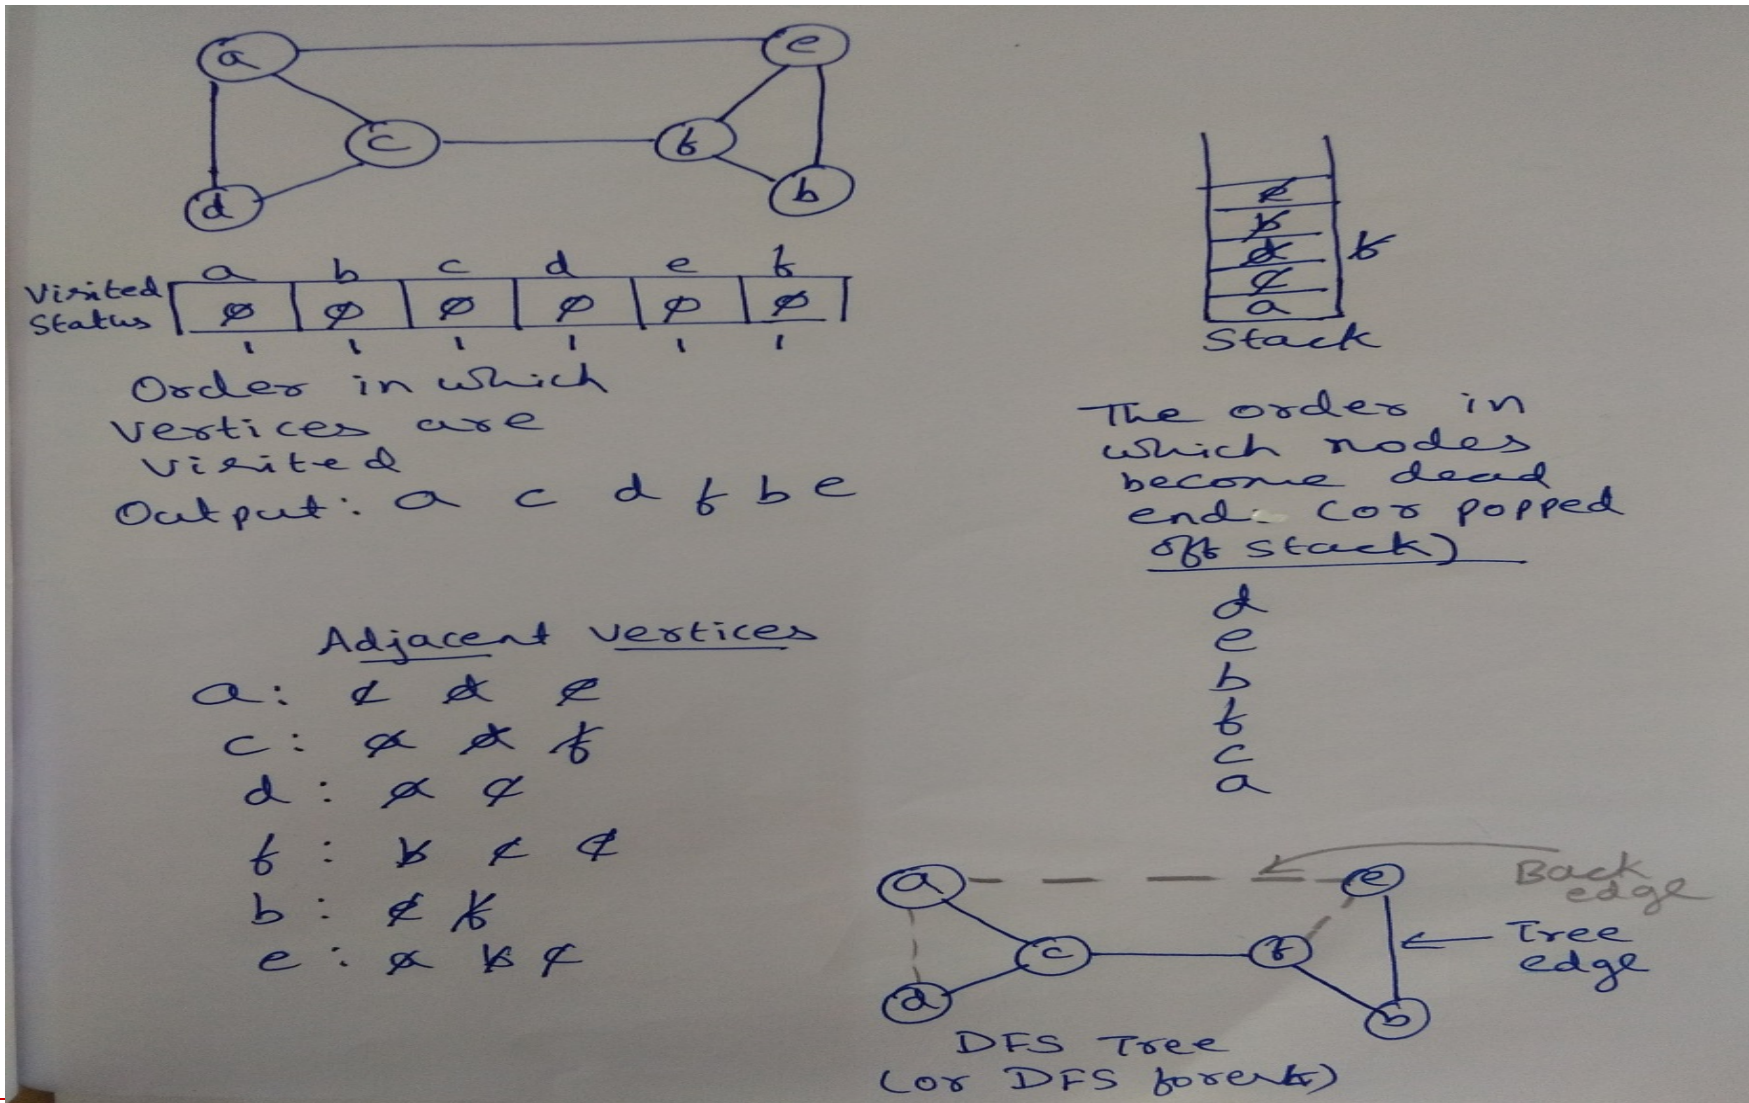 a
e
c
f
b
d
a b c d e f
Visited
Status
0 0 0 0 0 0
1 1 1 1 1 1
Order in which
vertices are
visited
Output: a c d f b e
e
b
d f
c
a
Stack
The order in
which nodes
become dead
end. (or popped
off stack)
d
e
b
f
c
a
Adjacent vertices
a: c d e
c: a d f
d: a c
f: b c e
b: e f
e: a b f
a
e
c
f
d
b
Back
edge
Tree
edge
DFS Tree
(or DFS forest)